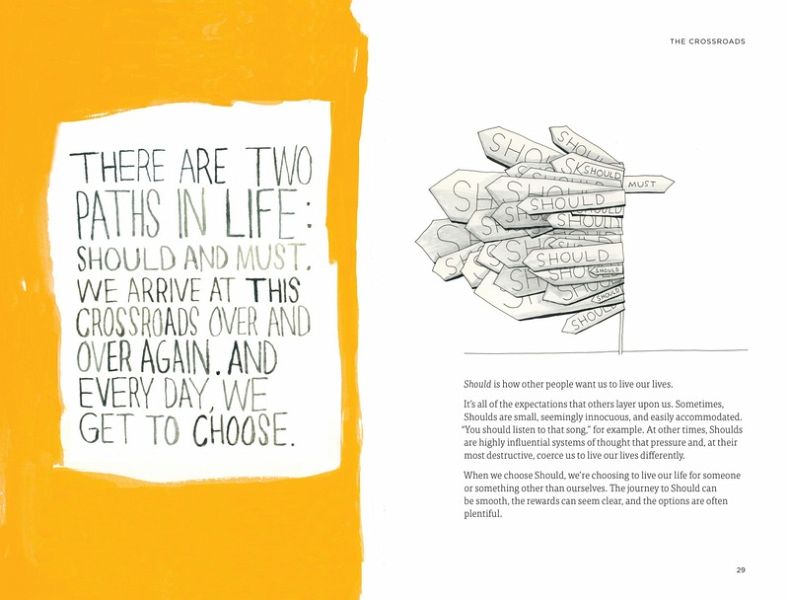 THERE ARE TWO
PATHS IN LIFE:
SHOULD AND MUST.
WE ARRIVE AT THIS
CROSSROADS OVER AND
OVER AGAIN. AND
EVERY DAY, WE
GET TO CHOOSE.
THE CROSSROADS
SHOULD
SHOULD
MUST
SHOULD
SHOULD
SHOULD
SHOULD
SHOULD
SHOULD
Should is how other people want us to live our lives.
It's all of the expectations that others layer upon us. Sometimes,
Shoulds are small, seemingly innocuous, and easily accommodated.
“You should listen to that song,” for example. At other times, Shoulds
are highly influential systems of thought that pressure and, at their
most destructive, coerce us to live our lives differently.
When we choose Should, we're choosing to live our life for someone
or something other than ourselves. The journey to Should can
be smooth, the rewards can seem clear, and the options are often
plentiful.
29